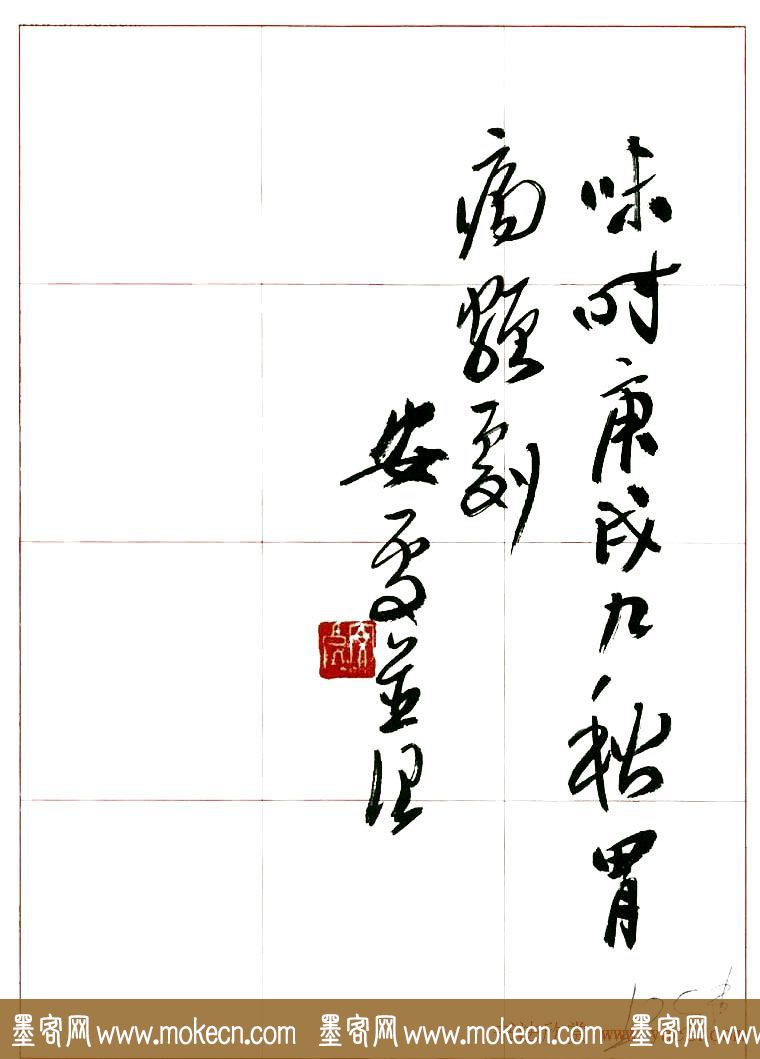 味时庚戌九秋胃
病剧
安並
墨客网 www.mokecn.com 墨客网 www.mokecn.com 墨客网 www